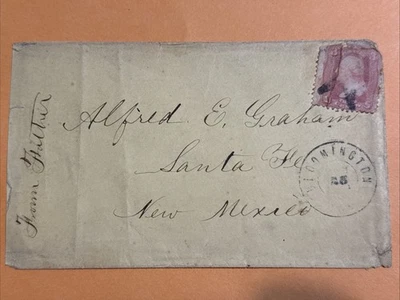 From Father
Alfred E. Graham
Santa Fe
New Mexico
BLOOMINGTON
25